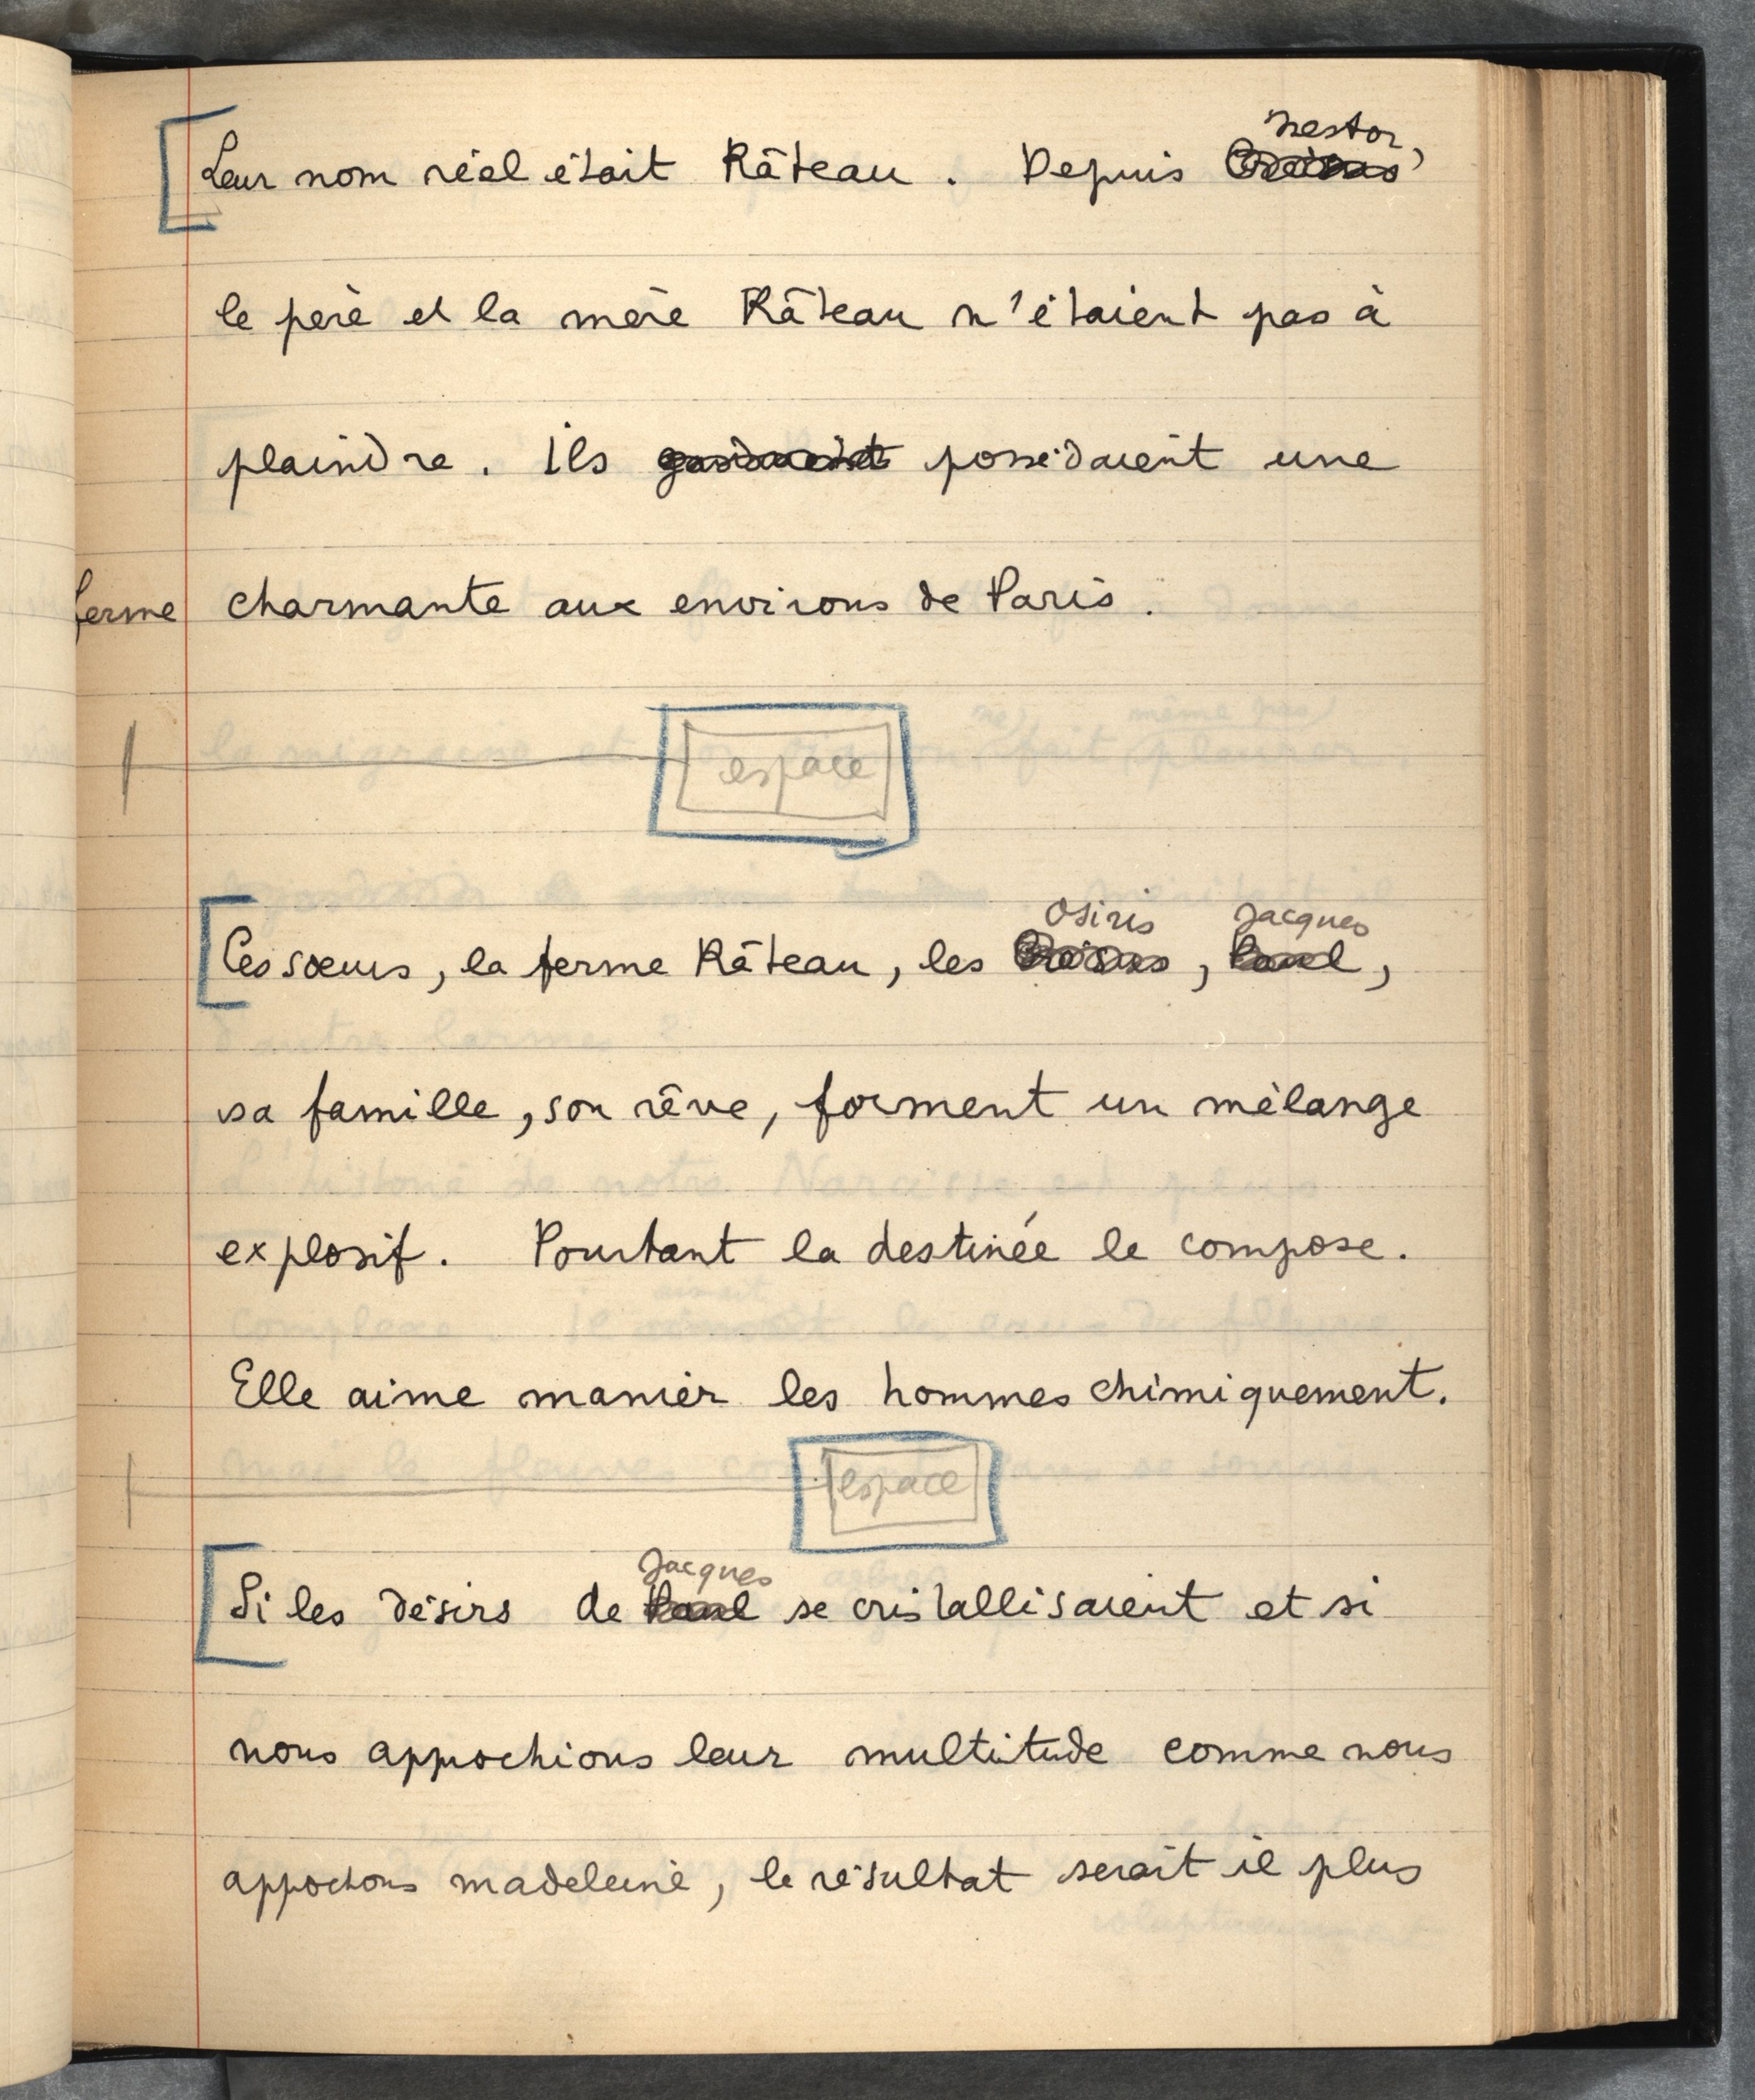 nestor,
Leur nom réel était Râteau. Depuis
le père et la mère Râteau n'étaient pas à
plaindre. Ils possédaient une
ferme charmante aux environs de Paris.
espace
Osiris Jacques
Ces sœurs, la ferme Râteau, les , Paul,
sa famille, son rêve, forment un mélange
explosif. Pourtant la destinée le compose.
Elle aime manier les hommes chimiquement.
espace
Jacques
Si les désirs de Paul se cristallisaient et si
nous approchions leur multitude comme nous
approchons madeleine, le résultat serait il plus